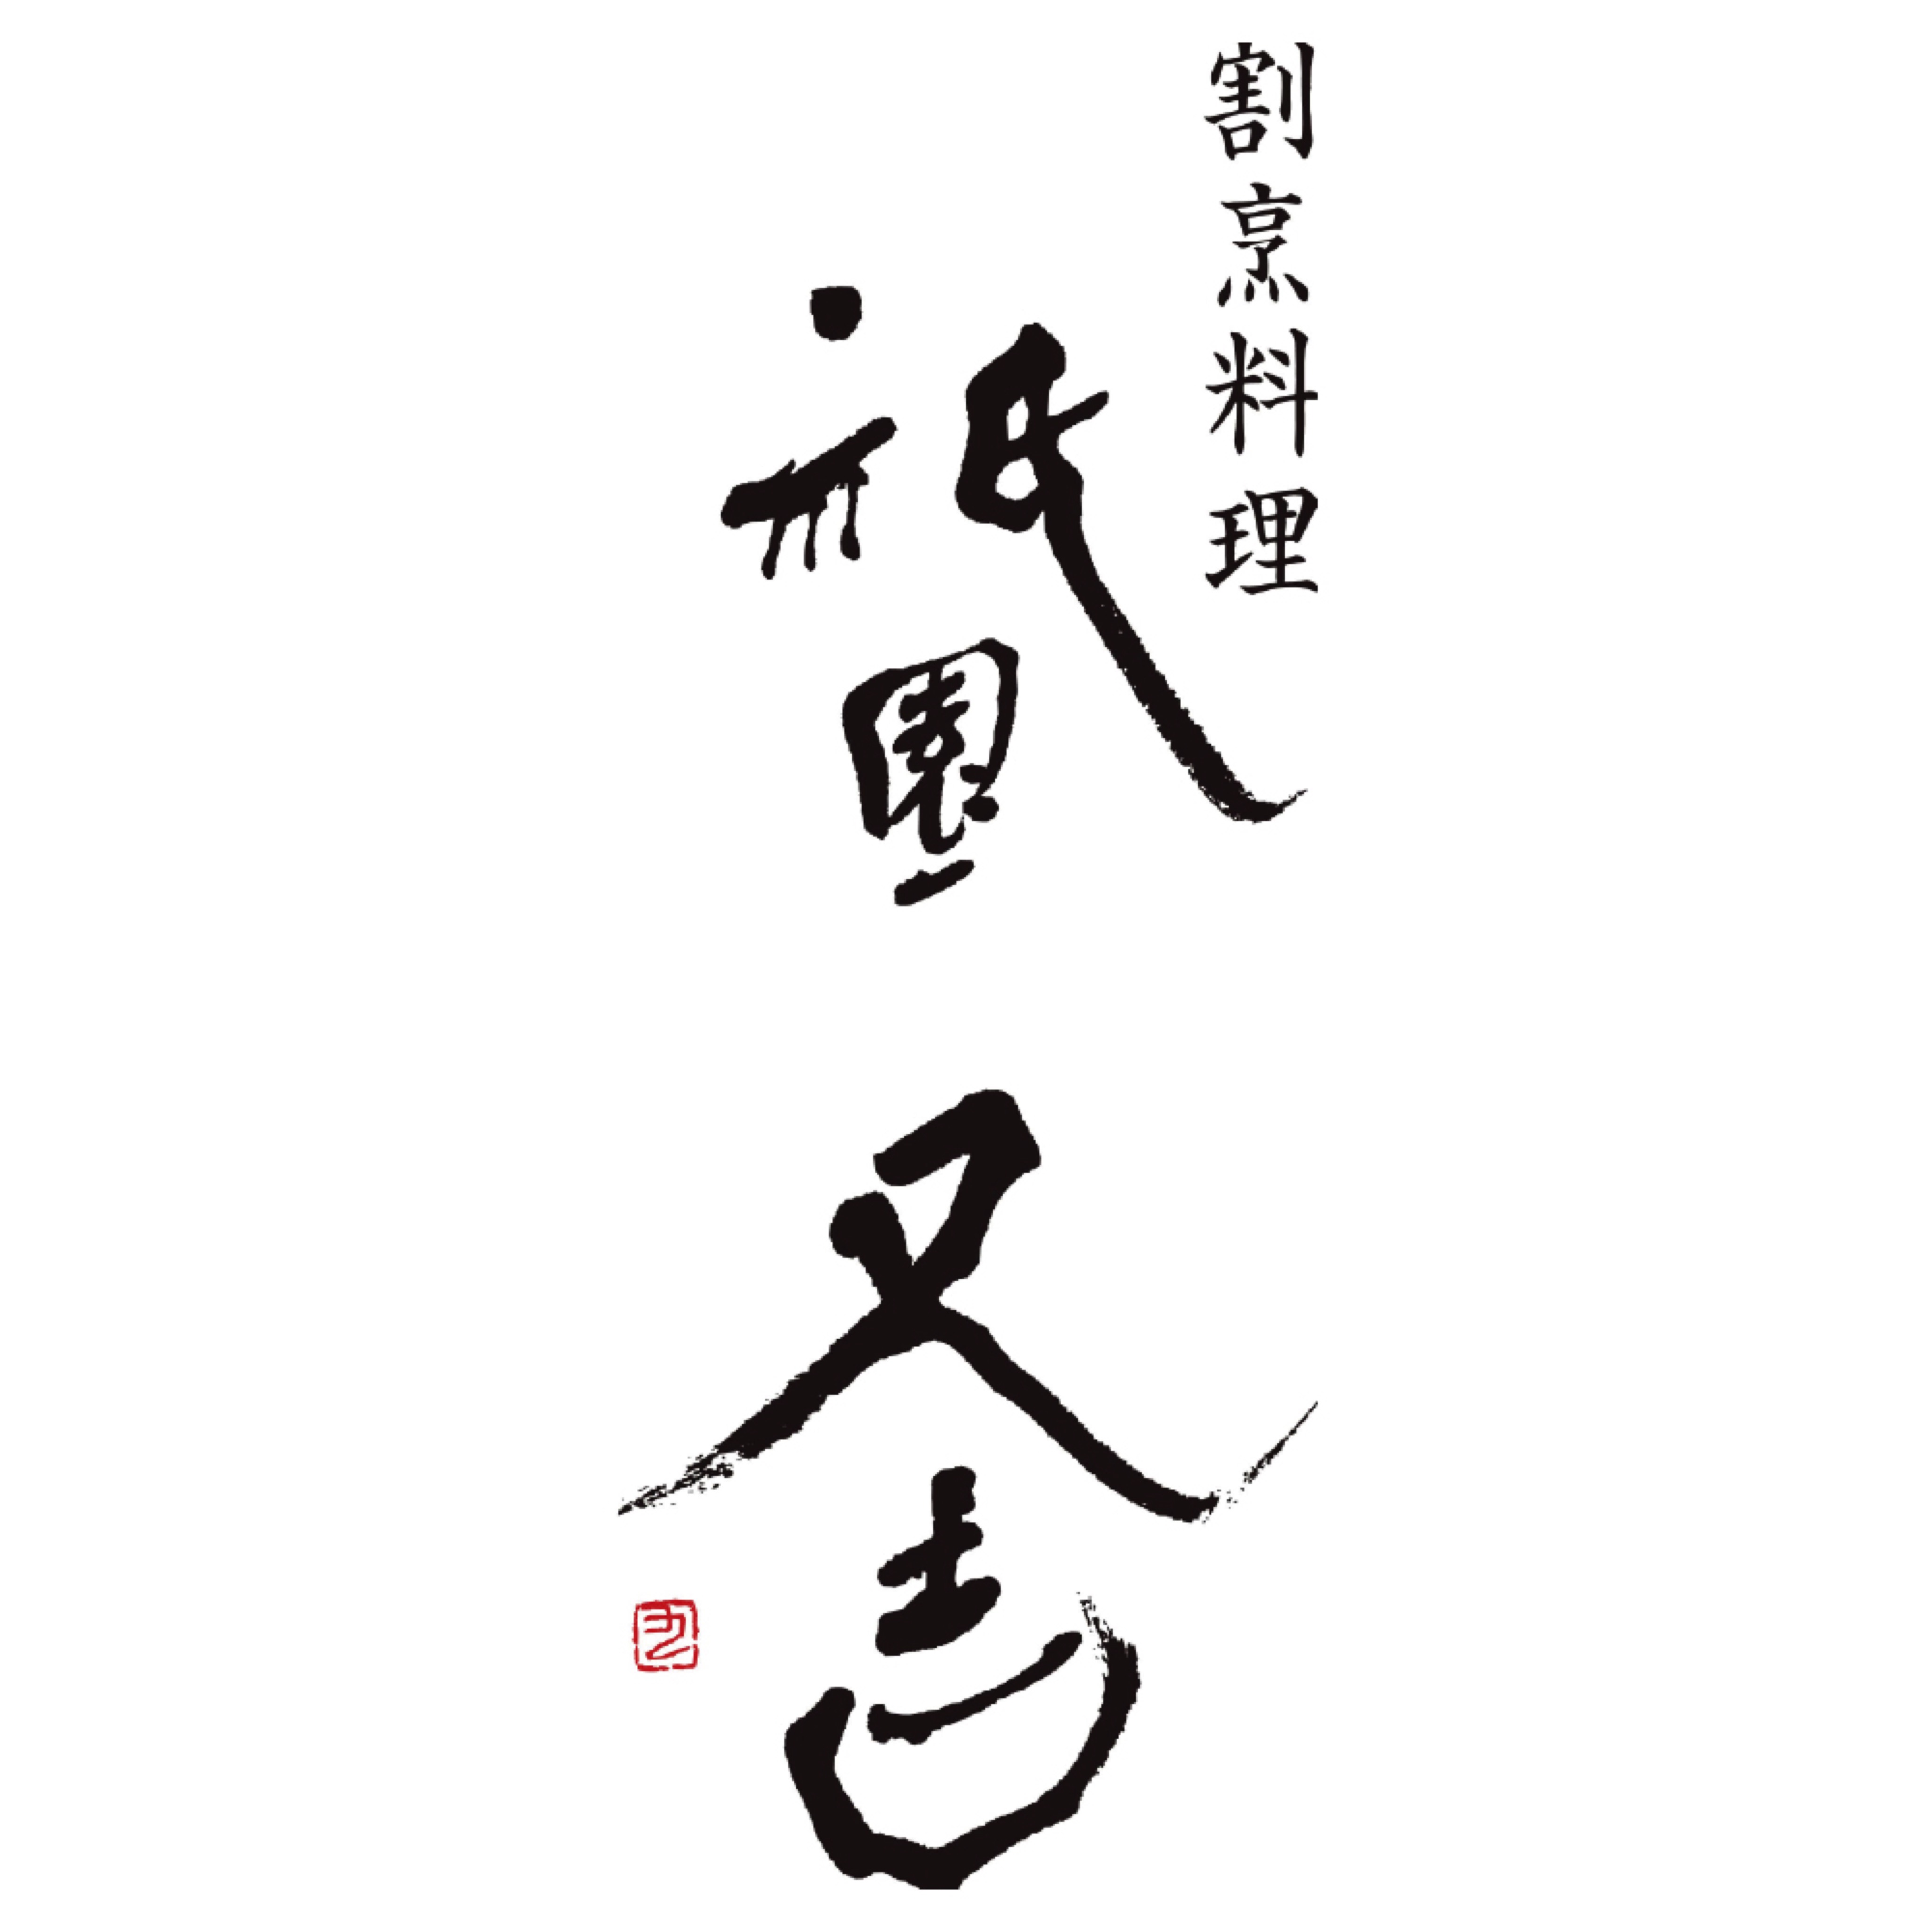 割烹料理
祇園又吉